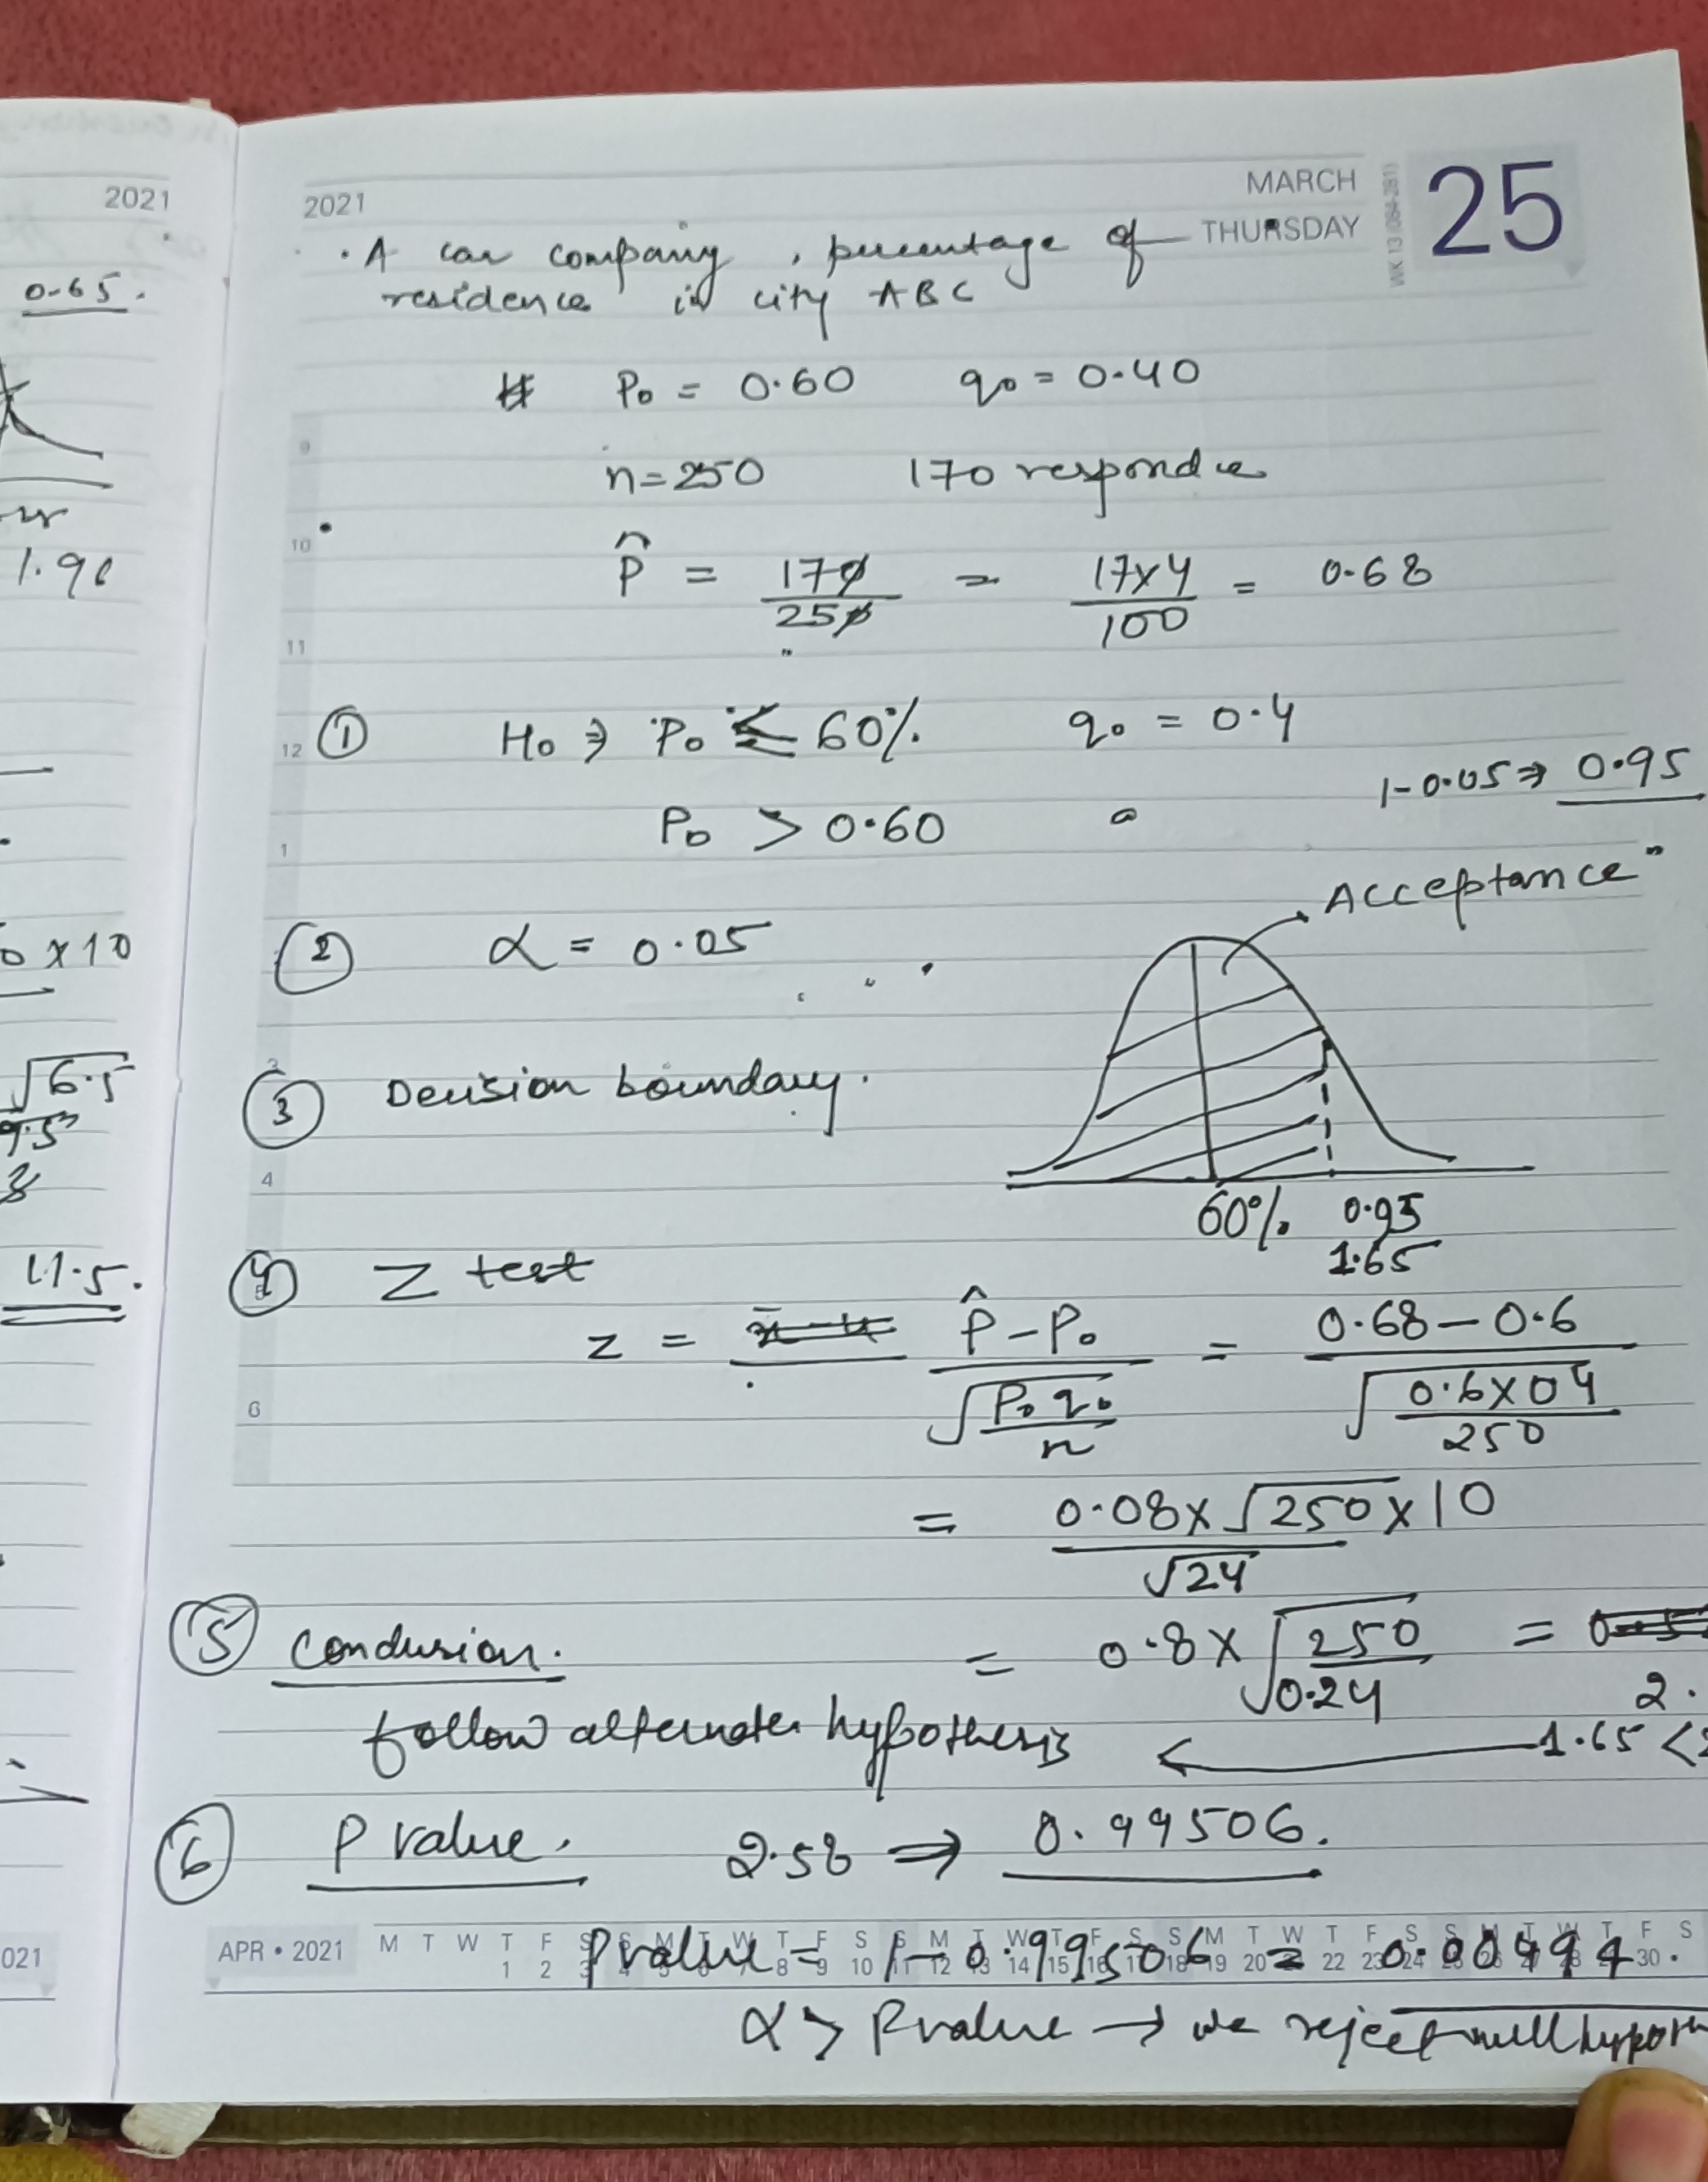 2021
0-65.
1.96
0 x 10
√6.5
9.5
3
11.5.
021
2021
MARCH
THURSDAY
25
WK 13 (084-281)
. A car company , percentage of
residence in city ABC
P₀ = 0.60 q₀ = 0.40
n=250 170 respond
9
P̂ = 170/250 = 17x4/100 = 0.68
10
11
① H₀ ⇒ P₀ ≤ 60% q₀ = 0.4
12
1-0.05 ⇒ 0.95
P₀ > 0.60
1
Acceptance
② α = 0.05
③ Decision boundary.
3
4
60% 0.95
1.65
④ Z test
5
z = P̂ - P₀ / √(P₀ q₀ / n) = 0.68 - 0.6 / √(0.6 x 04 / 250)
6
= 0.08 x √250 x 10 / √24
⑤ Conclusion. = 0.8 x √(250/0.24) =
2.
follow alternate hypothesis ← 1.65 <2
⑥ P value. 2.58 ⇒ 0.99506.
APR • 2021 M T W T F S S M T W T F S S M T W T F S S M T W T F S S M T W T F S
1 2 3 4 5 6 7 8 9 10 11 12 13 14 15 16 17 18 19 20 21 22 23 24 25 26 27 28 29 30
P value = 1 - 0.99506 = 0.00494.
α > P value → we reject null hypoth